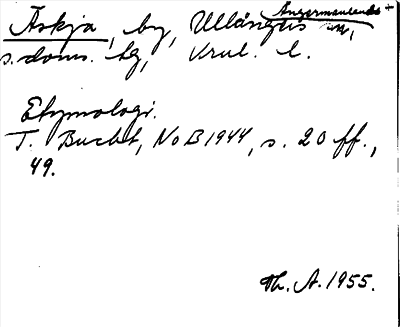 Äskja, by, Ullångers sn,
Ångermanlands +
s. doms. lg, Vrnl. l.
Etymologi.
T. Bucht, NoB 1944, s. 20 ff.,
49.
Th. A. 1955.